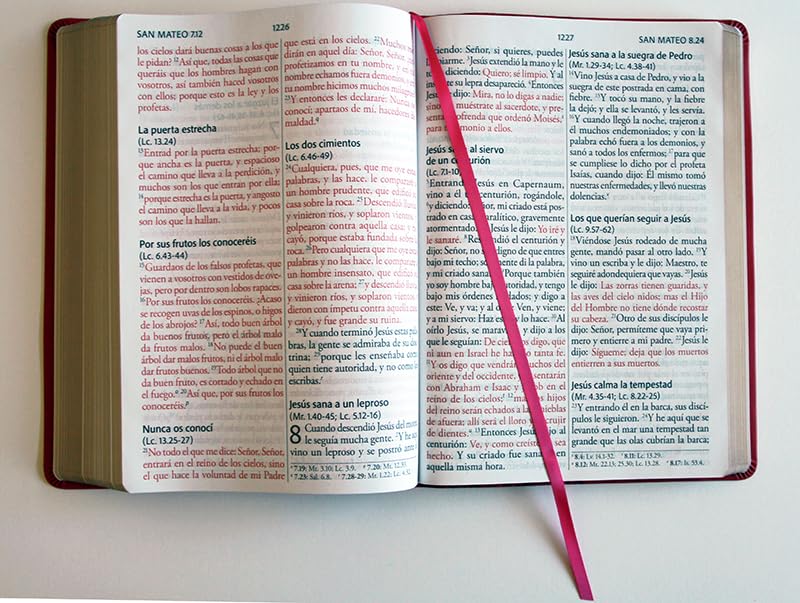 SAN MATEO 7.12
1226
los cielos dará buenas cosas a los que
le pidan? 12Así que, todas las cosas que
queráis que los hombres hagan con
vosotros, así también haced vosotros
con ellos; porque esto es la ley y los
profetas.
La puerta estrecha
(Lc. 13.24)
13Entrad por la puerta estrecha; por-
que ancha es la puerta, y espacioso
el camino que lleva a la perdición, y
muchos son los que entran por ella;
14porque estrecha es la puerta, y angosto
el camino que lleva a la vida, y pocos
son los que la hallan.
Por sus frutos los conoceréis
(Lc. 6.43-44)
15Guardaos de los falsos profetas, que
vienen a vosotros con vestidos de ove-
jas, pero por dentro son lobos rapaces.
16Por sus frutos los conoceréis. ¿Acaso
se recogen uvas de los espinos, o higos
de los abrojos? 17Así, todo buen árbol
da buenos frutos, pero el árbol malo
da frutos malos. 18No puede el buen
árbol dar malos frutos, ni el árbol malo
dar frutos buenos. 19Todo árbol que no
da buen fruto, es cortado y echado en
el fuego. 20Así que, por sus frutos los
conoceréis.
Nunca os conocí
(Lc. 13.25-27)
21No todo el que me dice: Señor, Señor,
entrará en el reino de los cielos, sino
el que hace la voluntad de mi Padre
que está en los cielos. 22Muchos me
dirán en aquel día: Señor, Señor,
profetizamos en tu nombre, y en
nombre echamos fuera demonios,
tu nombre hicimos muchos milagros
23Y entonces les declararé: Nunca os
conocí; apartaos de mí, hacedores de
maldad.
Los dos cimientos
(Lc. 6.46-49)
24Cualquiera, pues, que me oye estas
palabras, y las hace, le compararé a
un hombre prudente, que edificó su
casa sobre la roca. 25Descendió lluvia,
y vinieron ríos, y soplaron vientos, y
golpearon contra aquella casa; y no
cayó, porque estaba fundada sobre la
roca. 26Pero cualquiera que me oye estas
palabras y no las hace, le compararé a
un hombre insensato, que edificó su
casa sobre la arena; 27y descendió lluvia,
y vinieron ríos, y soplaron vientos, y
dieron con ímpetu contra aquella casa;
y cayó, y fue grande su ruina.
28Y cuando terminó Jesús estas pala-
bras, la gente se admiraba de su doc-
trina; 29porque les enseñaba como
quien tiene autoridad, y no como los
escribas.
Jesús sana a un leproso
(Mr. 1.40-45; Lc. 5.12-16)
8 Cuando descendió Jesús del monte,
le seguía mucha gente. 2Y he aquí
vino un leproso y se postró ante él,
7.19: Mt. 3.10; Lc. 3.9. 7.20: Mt. 12.33.
7.23: Sal. 6.8. 7.28-29: Mr. 1.22; Lc. 4.32.
1227
SAN MATEO 8.24
diciendo: Señor, si quieres, puedes
limpiarme. 3Jesús extendió la mano y le
tocó, diciendo: Quiero; sé limpio. Y al
instante su lepra desapareció. 4Entonces
Jesús le dijo: Mira, no lo digas a nadie;
sino ve, muéstrate al sacerdote, y pre-
senta la ofrenda que ordenó Moisés,
para testimonio a ellos.
Jesús sana al siervo
de un centurión
(Lc. 7.1-10)
5Entrando Jesús en Capernaum,
vino a él un centurión, rogándole,
6y diciendo: Señor, mi criado está pos-
trado en casa, paralítico, gravemente
atormentado. 7Y Jesús le dijo: Yo iré y
le sanaré. 8Respondió el centurión y
dijo: Señor, no soy digno de que entres
bajo mi techo; solamente di la palabra,
y mi criado sanará. 9Porque también
yo soy hombre bajo autoridad, y tengo
bajo mis órdenes soldados; y digo a
este: Ve, y va; y al otro: Ven, y viene;
y a mi siervo: Haz esto, y lo hace. 10Al
oírlo Jesús, se maravilló, y dijo a los
que le seguían: De cierto os digo, que
ni aun en Israel he hallado tanta fe.
11Y os digo que vendrán muchos del
oriente y del occidente, y se sentarán
con Abraham e Isaac y Jacob en el
reino de los cielos; 12mas los hijos
del reino serán echados a las tinieblas
de afuera; allí será el lloro y el crujir
de dientes. 13Entonces Jesús dijo al
centurión: Ve, y como creíste, te sea
hecho. Y su criado fue sanado en
aquella misma hora.
Jesús sana a la suegra de Pedro
(Mr. 1.29-34; Lc. 4.38-41)
14Vino Jesús a casa de Pedro, y vio a la
suegra de este postrada en cama, con
fiebre. 15Y tocó su mano, y la fiebre
la dejó; y ella se levantó, y les servía.
16Y cuando llegó la noche, trajeron a
él muchos endemoniados; y con la
palabra echó fuera a los demonios, y
sanó a todos los enfermos; 17para que
se cumpliese lo dicho por el profeta
Isaías, cuando dijo: Él mismo tomó
nuestras enfermedades, y llevó nuestras
dolencias.
Los que querían seguir a Jesús
(Lc. 9.57-62)
18Viéndose Jesús rodeado de mucha
gente, mandó pasar al otro lado. 19Y
vino un escriba y le dijo: Maestro, te
seguiré adondequiera que vayas. 20Jesús
le dijo: Las zorras tienen guaridas, y
las aves del cielo nidos; mas el Hijo
del Hombre no tiene dónde recostar
su cabeza. 21Otro de sus discípulos le
dijo: Señor, permíteme que vaya prime-
ro y entierre a mi padre. 22Jesús le
dijo: Sígueme; deja que los muertos
entierren a sus muertos.
Jesús calma la tempestad
(Mr. 4.35-41; Lc. 8.22-25)
23Y entrando él en la barca, sus discí-
pulos le siguieron. 24Y he aquí que se
levantó en el mar una tempestad tan
grande que las olas cubrían la barca;
8.4: Lv. 14.1-32. 8.11: Lc. 13.29.
8.12: Mt. 22.13; 25.30; Lc. 13.28. 8.17: Is. 53.4.